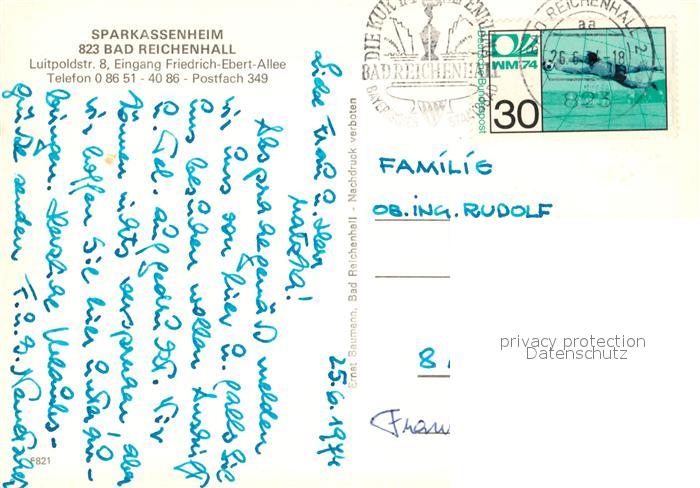 SPARKASSENHEIM
823 BAD REICHENHALL
Luitpoldstr. 8, Eingang Friedrich-Ebert-Allee
Telefon 0 86 51 - 40 86 - Postfach 349
25.6.1974
Liebe Frau u. Herr
Absprachegemäß melden
wir uns von hier u. falls Sie
uns besuchen wollen Anschrift
u. Tel. aufgedruckt. Wir
können nichts versprechen, aber
wir hoffen Sie hier unterzu-
bringen. Herzliche Urlaubs-
grüße senden F. u. G.
F821
Ernst Baumann, Bad Reichenhall - Nachdruck verboten
DIE KUR IN
BAD REICHENHALL
BAYERISCHES STAATSBAD
BAD REICHENHALL 2
aa
25.6. 18
823
WM 74
Deutsche Bundespost
30
FAMILIE
OB. ING. RUDOLF
8
privacy protection
Datenschutz